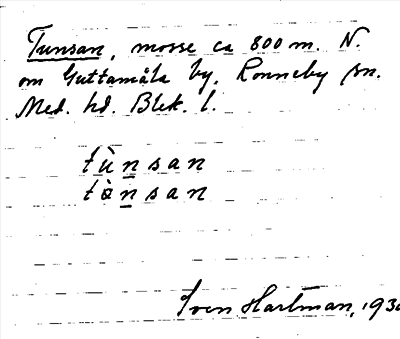 Tunsan, mosse ca 800 m. N.
om Guttamåla by, Ronneby sn.
Med. hd. Blek. l.
tùnsan
tònsan
Sven Hartman, 193